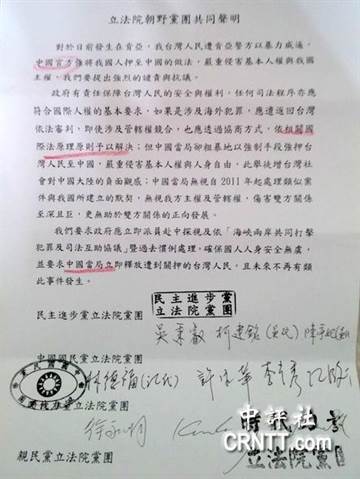 立法院朝野黨團共同聲明
對於日前發生在肯亞，我台灣人民遭肯亞警方以暴力威逼，
中國官方強將我國人押至中國的做法，嚴重侵害基本人權與我國
主權，我們要提出強烈的譴責與抗議。
政府有責任保障台灣人民的安全與權利，任何司法程序亦應
符合國際人權的基本要求，如果是涉及海外犯罪，應遣返回台灣
依法審判，即使涉及管轄競合，也應透過協商方式，依相關國
際法原理原則予以解決；但中國當局卻粗暴地以強制手段強押台
灣人民至中國，嚴重侵害基本人權與人身自由，此舉統增台灣社
會對中國大陸的負面觀感；中國當局無視自2011年起處理類似案
件與我國所建立的默契，無視我方主權及管轄權，傷害雙方關係
至深且鉅，更無助於雙方關係的正向發展。
我們要求政府應立即派員赴中探視及依「海峽兩岸共同打擊
犯罪及司法互助協議」暨過去慣例處理，確保國人人身安全無虞，
並要求中國當局立即釋放遭到關押的台灣人民，且未來不再有類
此事件發生。
民主進步黨
立法院黨團
民主進步黨立法院黨團
吳秉叡 柯建銘
中國國民黨立法院黨團
林德福
時代力
立法院黨
親民黨立法院黨團
中評社
CRNTT.com